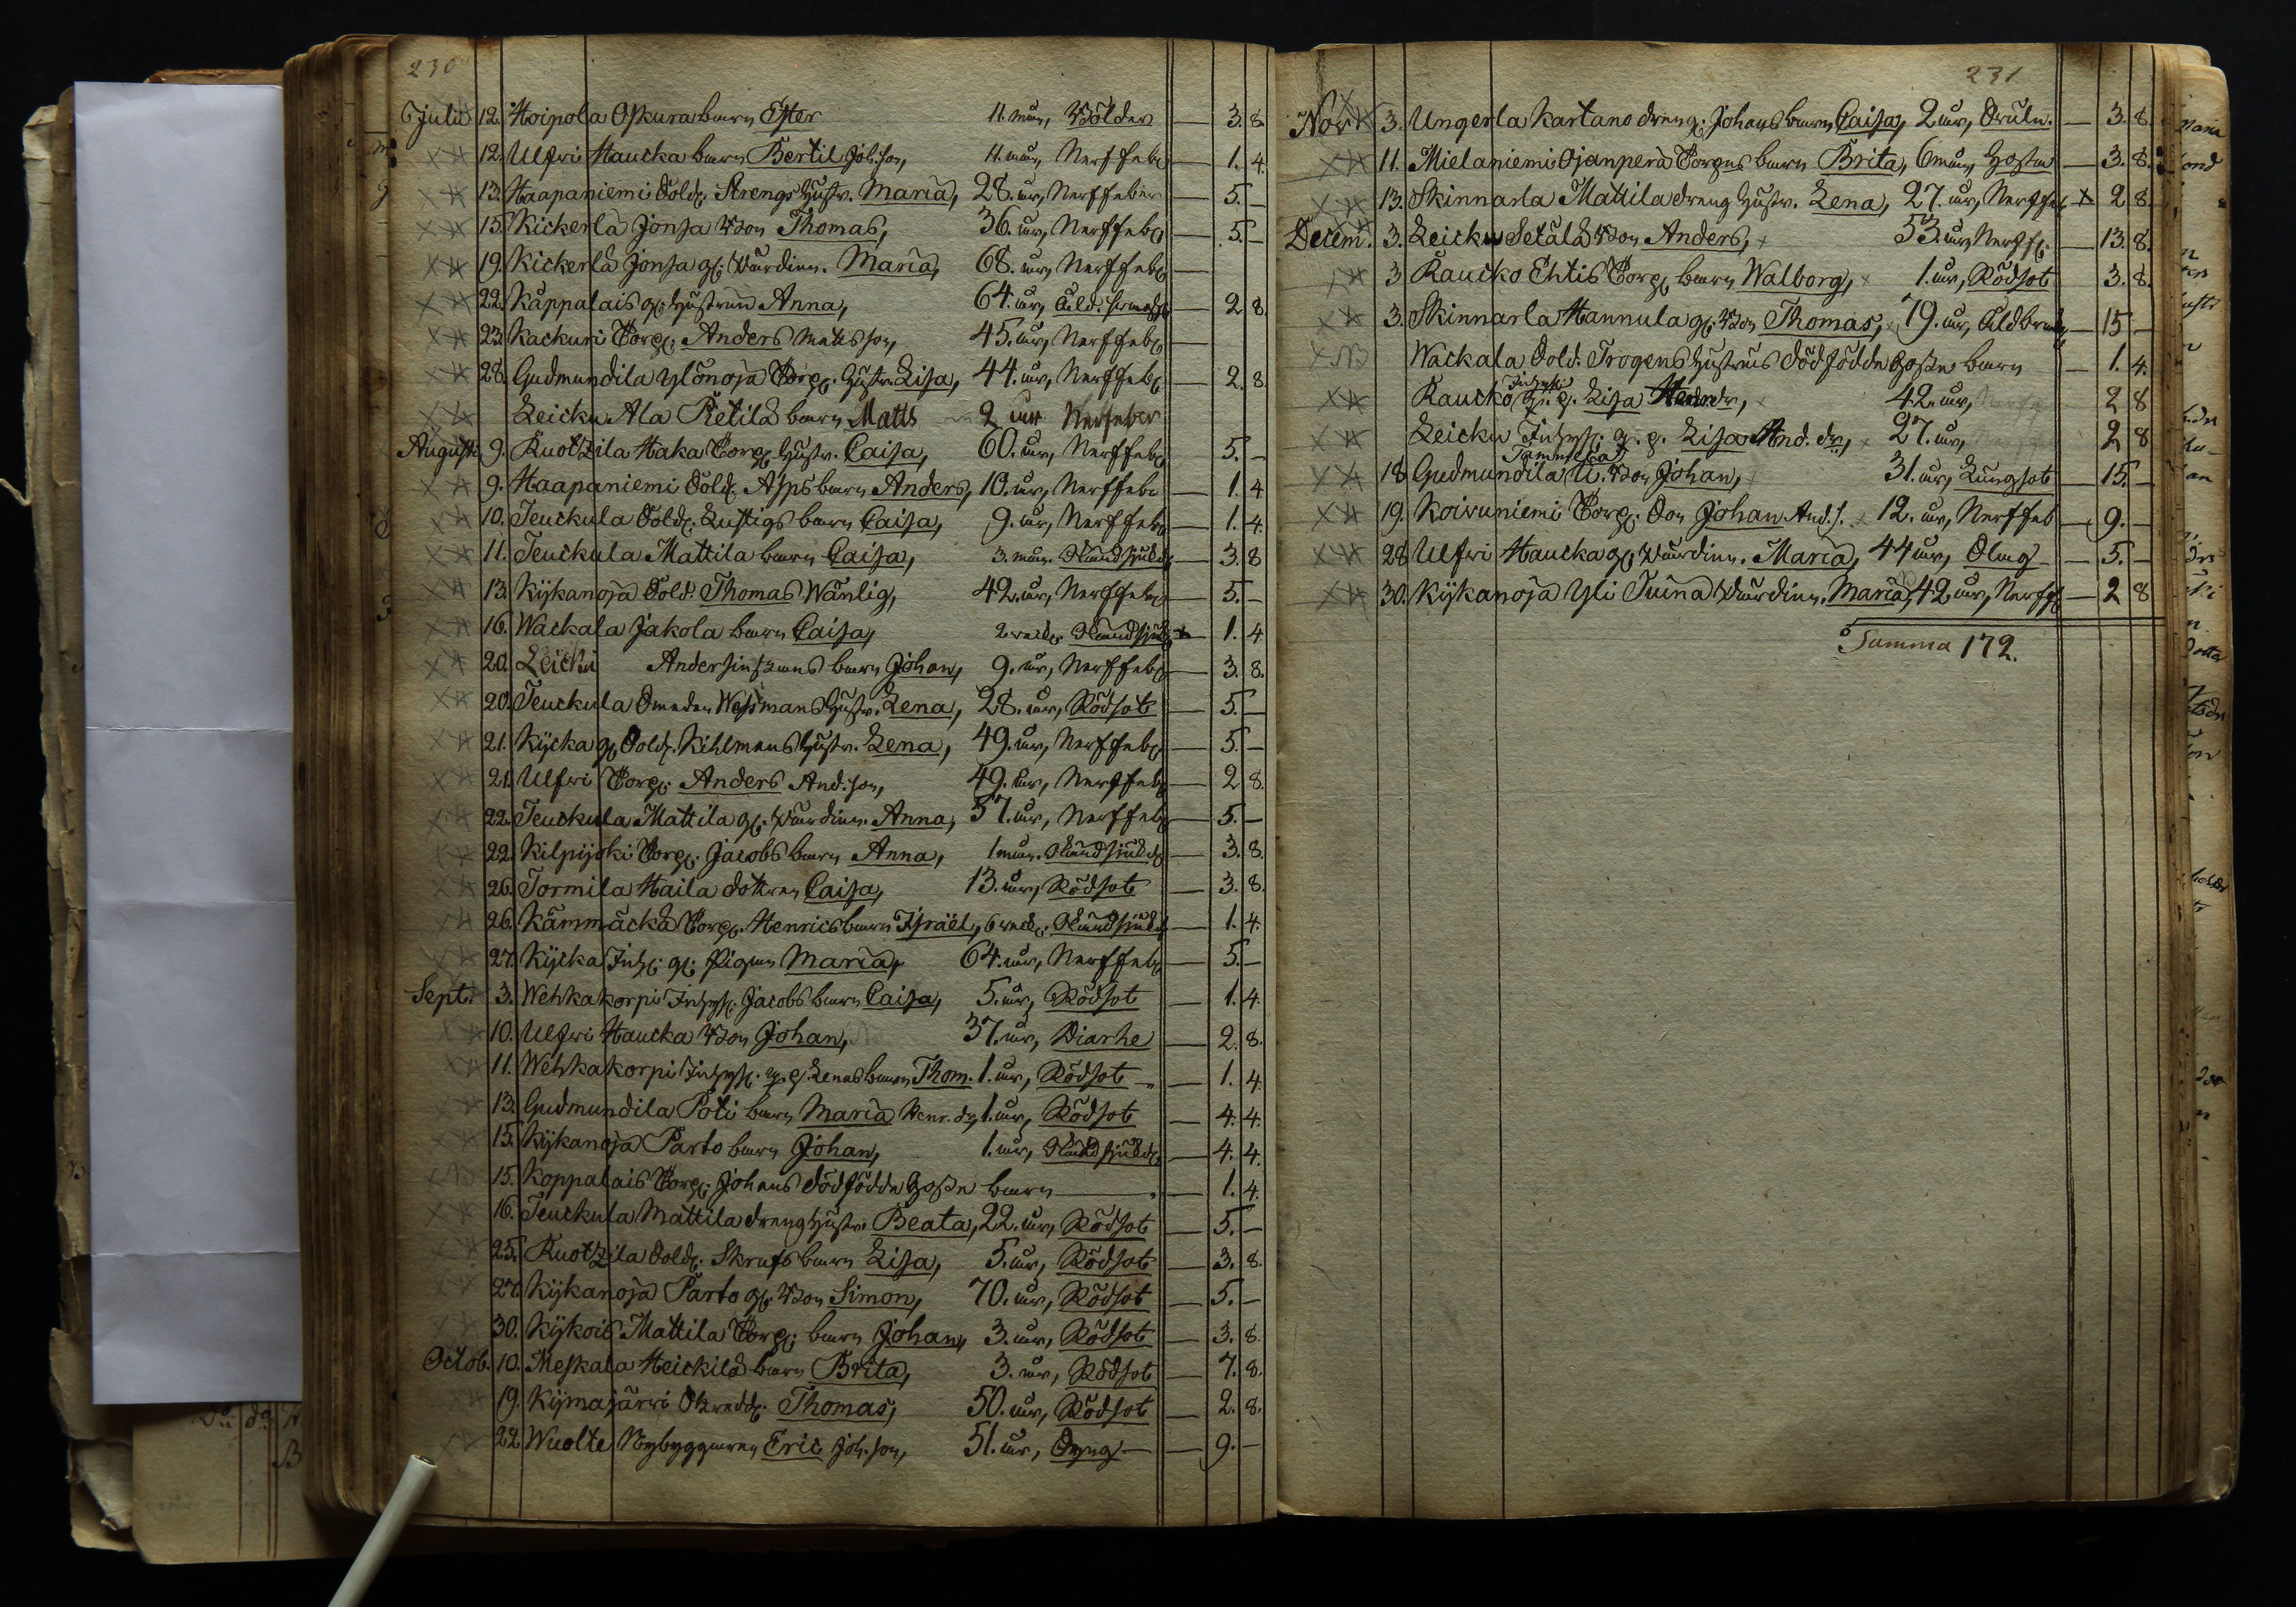 230
Julii 12. Hoipola Oskura barn Ester 11. mån, Bölder — 3. 8.
12. Ulfwi Haucka barn Bertil Joh.son, 11. mån, Nerffeb — 1. 4.
13. Haapaniemi Sold. Strengs hustr. Maria, 28. år, Nerffeber — 5. —
15. Kickerlä Jonsa Bon Thomas, 36. år, Nerffeb — 5. —
19. Kickerlä Jonsa g. Wärdinn. Maria, 68. år, Nerffeb —
22. Kåppalais g. hustrun Anna, 64. år, — 2 8.
23. Kackuri Torp. Anders Matts son, 45. år, Nerffeb —
28. Gudmundila Ylönoja Torp. hustr. Lisa, 44. år, Nerffeb — 2. 8
Leicku Ala Retilä barn Matts 2 år Nerfeber
Augusti 9. Ruotzila Haka Torp. hustr. Caisa, 60. år, Nerffeb — 5. —
9. Haapaniemi Sold. Asps barn Anders, 10. år, Nerffeb — 1. 4
10. Teuckula Sold. Lustigs barn Caisa, 9. år, Nerffeb — 1. 4.
11. Teuckula Mattila barn Caisa, 3. mån. — 3. 8
13. Kykanoja Sold. Thomas Wänlig, 42. år, Nerffeb — 5. —
16. Wackala Jakola barn Caisa, 2 weck. — 1. 4
20. Leicku Andersintzans barn Johan, 9. år, Nerffeb — 3. 8.
20. Teuckula Smeden Wessmans hustr. Lena, 28. år, Rödsot — 5. —
21. Kycka g. Sold. Kihlmans hustr. Lena, 49. år, Nerffeb — 5. —
21. Ulfwi Torp. Anders And.son, 49. år, Nerffeb — 2 8.
22. Teuckula Mattila g. Wärdinn. Anna, 57. år, Nerffeb — 5. —
22. Kilpijoki Torp. Jacobs barn Anna, 1 mån. — 3. 8.
26. Tormila Haila dottren Caisa, 13. år, Rödsot — 3. 8.
26. Kämmäckä Torp. Henrics barn Israël, 6 weck. — 1. 4.
27. Kycka Inh. g. Pigan Maria, 64. år, Nerffeb — 5. —
Sept. 3. Wehkakorpi Inhys. Jacobs barn Caisa, 5. år, Rödsot — 1. 4.
10. Ulfwi Haucka Bon Johan, 37. år, Diarhe — 2. 8.
11. Wehkakorpi Inhys. q. p. Lenas barn Thom. 1. år, Rödsot — 1. 4
13. Gudmundila Poti barn Maria Henr. dr, 1. år, Rödsot — 4. 4.
15. Kykanoja Parto barn Johan, 1. år, — 4. 4.
15. Koppalais Torp. Johans dödfödde Gosse barn — 1. 4.
16. Teuckula Mattila dreng hustr. Beata, 22. år, Rödsot — 5. —
25. Ruotzila Sold. Skrufs barn Lisa, 5. år, Rödsot — 3. 8.
27. Kykanoja Parto g. Bon Simon, 70. år, Rödsot — 5. —
30. Kykois Mattila Torp. barn Johan, 3. år, Rödsot — 3. 8.
Octob. 10. Meskala Heickilä barn Brita, 3. år, Rödsot — 7. 8.
19. Kymajärwi Thomas, 50. år, Rödsot — 2. 8.
22 Wuolte Nybyggaren Eric Joh. son, 51. år, — 9. —
231
Nov. 3. Ungerla Kartano dreng. Johans barn Caisa, 2 år, — 3. 8.
11. Mielaniemi Ojanperä Torpns barn Brita, 6 mån, Hosta — 3. 8.
13. Skinnarla Mattila dreng hustr. Lena, 27. år, Nerffeb — 2 8.
Decem. 3. Leicku Setälä Bon Anders, 53. år, Nerff. — 13. 8.
3 Raucko Ehtis Torp. barn Walborg, 1. år, Rödsot 3. 8.
3. Skinnarla Hannula g. Bon Thomas, 79. år, — 15 —
Wackala Sold. Trogens hustrus dödfödde Gosse barn — 1. 4.
Raucko Inhys. q. p. Lisa Henr.dr, 42. år, 2 8
Leicku Inhys. q. p. Lisa And. dr, 27. år, 2 8
18 Gudmundila Tammela U. Bon Johan, 31. år, Lungsot — 15. —
19. Koivuniemi Torp. Son Johan And. s. 12. år, Nerffeb — 9. —
28 Ulfwi Haucka g. Wärdinn. Maria, 44 år, — 5. —
30. Kykanoja Yli Tuina Wärdinn. Maria, 42 år, Nerff — 2 8
Summa 172.